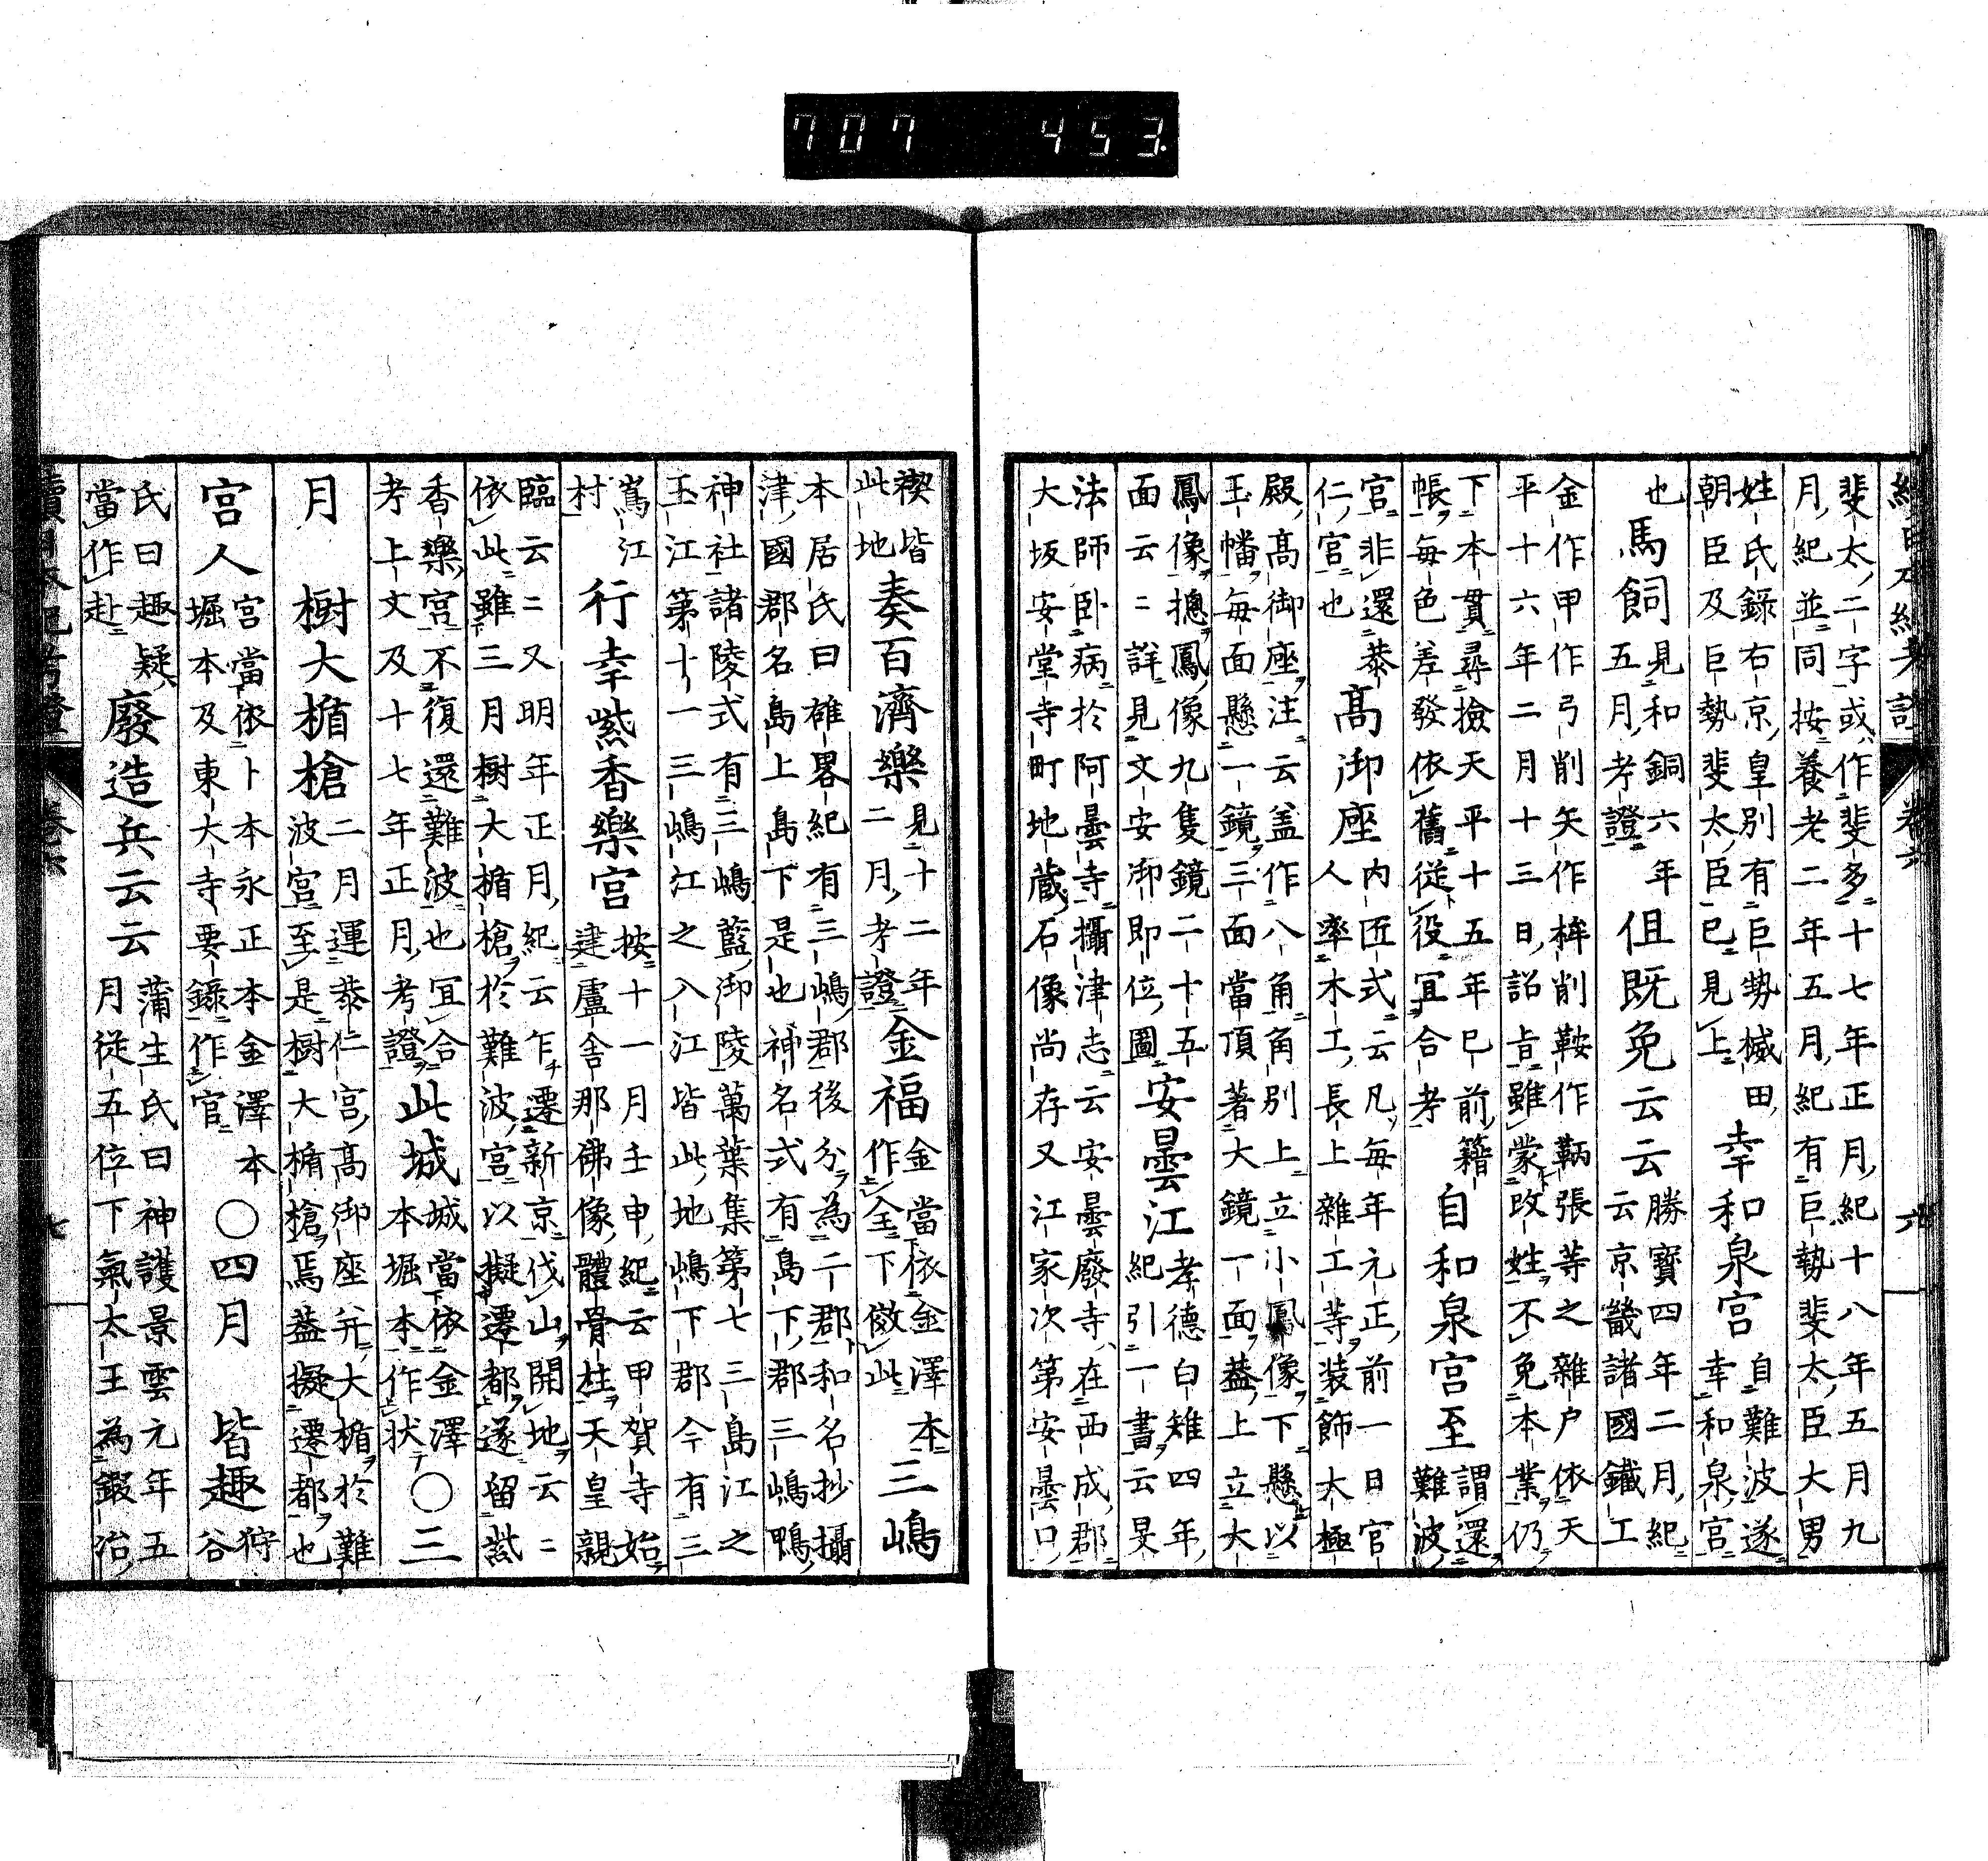 707 453
斐太二字或作斐多十七年正月紀十八年五月九
月紀並同按養老二年五月紀有巨勢斐太臣大男
姓氏錄右京皇別有巨勢樴田
朝臣及巨勢斐太臣已見上
幸和泉宮
自難波遂
幸和泉宮
也
馬飼
見和銅六年
五月考證
伹既免云云
勝寶四年二月紀
云京畿諸國鐵工
金作甲作弓削矢作桙削鞍作鞆張等之雜户依天
平十六年二月十三日詔旨雖蒙改姓不免本業仍
下本貫尋撿天平十五年巳前籍
帳毎色差發依舊從役冝合考
自和泉宮至
謂還
難波
官非還恭
仁宮也
髙御座
内匠式云凡毎年元正前一日官
人率木工長上雜工等装飾大極
殿髙御座注云盖作八角角別上立小鳳像下懸以
玉幡毎面懸一鏡三面當頂著大鏡一面葢上立大
鳳像揔鳳像九隻鏡二十五
面云〻詳見文安御即位圖
安曇江
孝德白雉四年
紀引一書云旻
法師卧病於阿曇寺攝津志云安曇廢寺在西成郡
大坂安堂寺町地蔵石像尚存又江家次第安曇口
卷六
六
禊皆
此地
奏百濟樂
見十二年
二月考證
金福
金當依金澤本
作全下傚此
三嶋
本居氏曰雄畧紀有三嶋郡後分為二郡和名抄攝
津國郡名島上島下是也神名式有島下郡三嶋鴨
神社諸陵式有三嶋藍御陵萬葉集第七三島江之
玉江第十一三嶋江之入江皆此地嶋下郡今有三
嶌江
村
行幸紫香樂宮
按十一月壬申紀云甲賀寺始
建盧舎那佛像體骨柱天皇親
臨云〻又明年正月紀云乍遷新京伐山開地云〻
依此雖三月樹大楯槍於難波宮以擬遷都遂留試
香樂宮不復還難波也冝合
考上文及十七年正月考證
此城
城當依金澤
本堀本作狀
○三
月
樹大楯槍
二月運恭仁宮髙御座并大楯於難
波宮至是樹大楯槍焉葢擬遷都也
宮人
宮當依卜本永正本金澤本
堀本及東大寺要錄作官
○四月
皆趣
狩
谷
氏曰趣疑
當作赴
廢造兵云云
蒲生氏曰神護景雲元年五
月從五位下氣太王為鍜冶